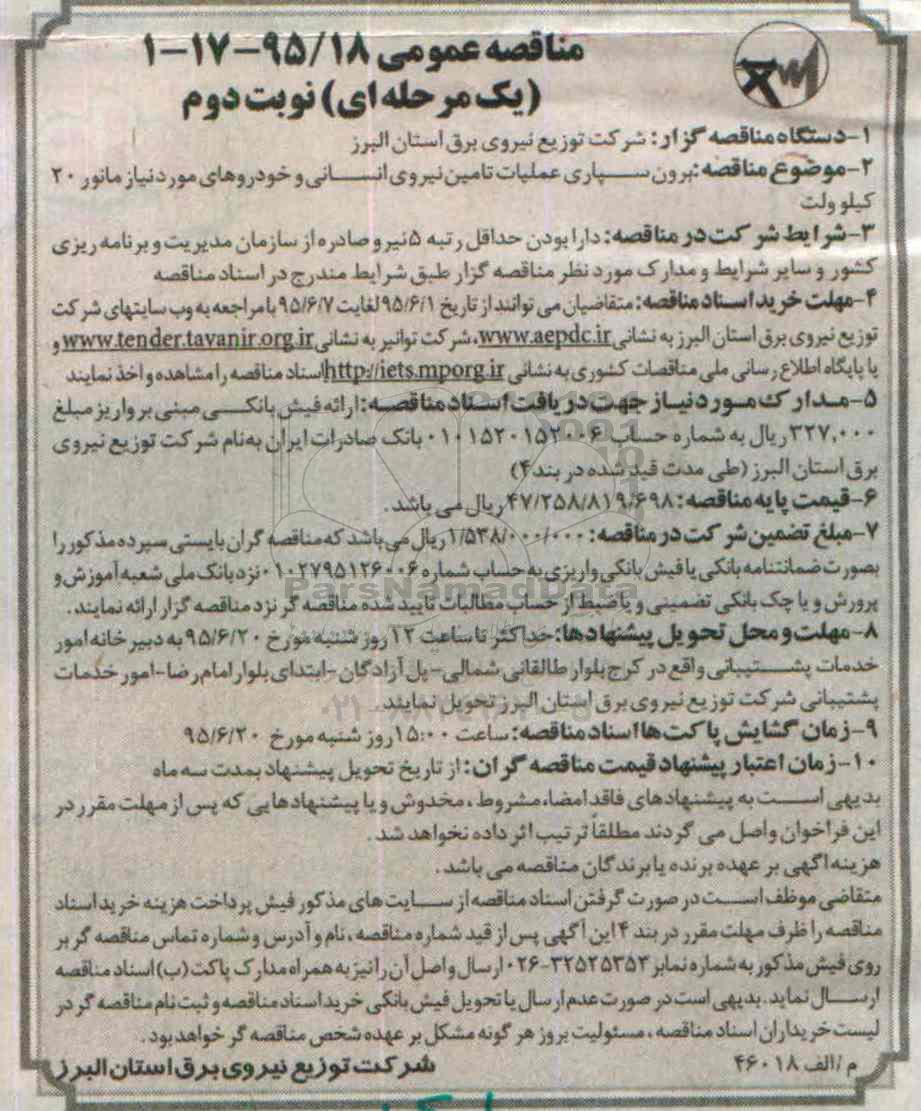 مناقصه عمومی ۹۵/۱۸-۱۷-۱
(یک مرحله ای) نوبت دوم
۱-دستگاه مناقصه گزار: شرکت توزیع نیروی برق استان البرز
۲-موضوع مناقصه: برون سپاری عملیات تامین نیروی انسانی و خودروهای مورد نیاز مانور ۲۰
کیلو ولت
۳-شرایط شرکت در مناقصه: دارا بودن حداقل رتبه ۵ نیرو صادره از سازمان مدیریت و برنامه ریزی
کشور و سایر شرایط و مدارک مورد نظر مناقصه گزار طبق شرایط مندرج در اسناد مناقصه
۴-مهلت خرید اسناد مناقصه: متقاضیان می توانند از تاریخ ۹۵/۶/۱ لغایت ۹۵/۶/۷ با مراجعه به وب سایتهای شرکت
توزیع نیروی برق استان البرز به نشانی www.aepdc.ir، شرکت توانیر به نشانی www.tender.tavanir.org.ir و
یا پایگاه اطلاع رسانی ملی مناقصات کشوری به نشانی http://iets.mporg.ir اسناد مناقصه را مشاهده و اخذ نمایند
۵-مدارک مورد نیاز جهت دریافت اسناد مناقصه: ارائه فیش بانکی مبنی بر واریز مبلغ
۳۲۷,۰۰۰ ریال به شماره حساب ۰۱۰۱۵۲۰۱۵۲۰۰۶ بانک صادرات ایران به نام شرکت توزیع نیروی
برق استان البرز (طی مدت قید شده در بند ۴)
۶-قیمت پایه مناقصه: ۴۷/۲۵۸/۸۱۹/۶۹۸ ریال می باشد.
۷-مبلغ تضمین شرکت در مناقصه: ۱/۵۳۸/۰۰۰/۰۰۰ ریال می باشد که مناقصه گران بایستی سپرده مذکور را
بصورت ضمانتنامه بانکی یا فیش بانکی واریزی به حساب شماره ۰۱۰۲۷۹۵۱۲۶۰۰۶ نزد بانک ملی شعبه آموزش و
پرورش و یا چک بانکی تضمینی و یا ضبط از حساب مطالبات تایید شده مناقصه گر نزد مناقصه گزار ارائه نمایند.
ParsNamadData
۸-مهلت و محل تحویل پیشنهادها: حداکثر تا ساعت ۱۲ روز شنبه مورخ ۹۵/۶/۲۰ به دبیرخانه امور
خدمات پشتیبانی واقع در کرج بلوار طالقانی شمالی-پل آزادگان-ابتدای بلوار امام رضا-امور خدمات
پشتیبانی شرکت توزیع نیروی برق استان البرز تحویل نمایند.
۹-زمان گشایش پاکت ها اسناد مناقصه: ساعت ۱۵:۰۰ روز شنبه مورخ ۹۵/۶/۲۰
۱۰-زمان اعتبار پیشنهاد قیمت مناقصه گران: از تاریخ تحویل پیشنهاد بمدت سه ماه
بدیهی است به پیشنهادهای فاقد امضا، مشروط، مخدوش و یا پیشنهادهایی که پس از مهلت مقرر در
این فراخوان واصل می گردند مطلقاً ترتیب اثر داده نخواهد شد.
هزینه آگهی بر عهده برنده یا برندگان مناقصه می باشد.
متقاضی موظف است در صورت گرفتن اسناد مناقصه از سایت های مذکور فیش پرداخت هزینه خرید اسناد
مناقصه را ظرف مهلت مقرر در بند ۴ این آگهی پس از قید شماره مناقصه، نام و آدرس و شماره تماس مناقصه گر بر
روی فیش مذکور به شماره نمابر ۳۲۵۲۵۳۵۳-۰۲۶ ارسال و اصل آن را نیز به همراه مدارک پاکت (ب) اسناد مناقصه
ارسال نماید. بدیهی است در صورت عدم ارسال یا تحویل فیش بانکی خرید اسناد مناقصه و ثبت نام مناقصه گر در
لیست خریداران اسناد مناقصه، مسئولیت بروز هر گونه مشکل بر عهده شخص مناقصه گر خواهد بود.
م/الف ۴۶۰۱۸
شرکت توزیع نیروی برق استان البرز